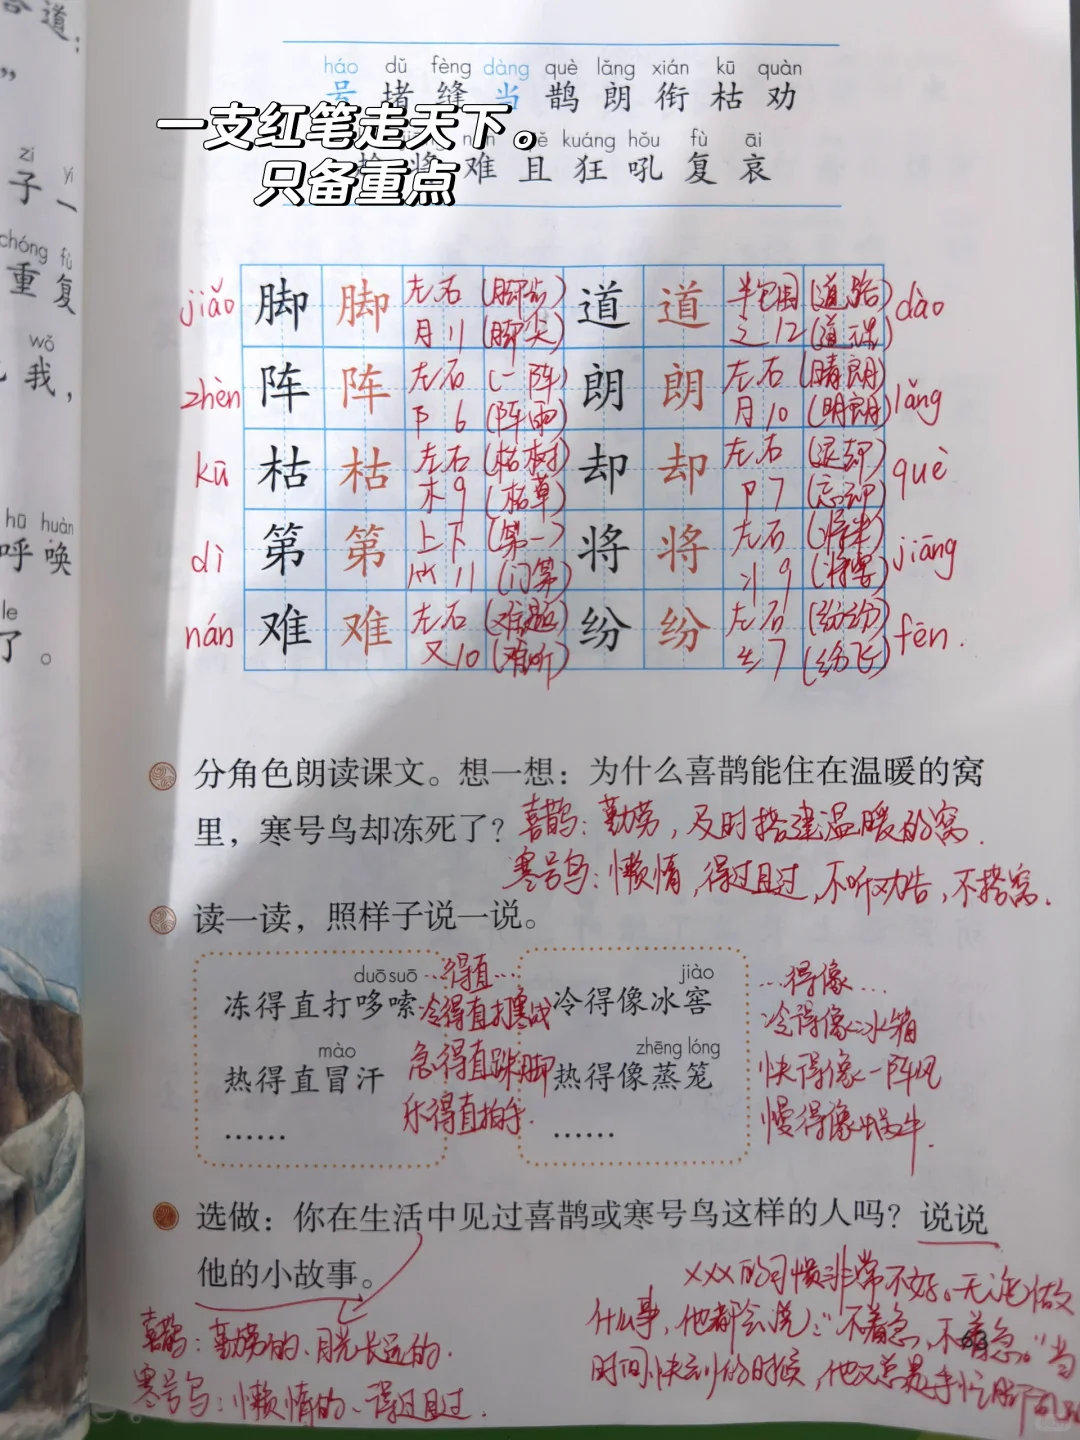 答道：
”
子一
zi yí
chóng fù
重复
wǒ
我，
hū huàn
呼唤
le
了。
háo dǔ fèng dàng què lǎng xián kū quàn
号 堵 缝 当 鹊 朗 衔 枯 劝
一支红笔走天下。
kuáng hǒu fù āi
难 且 狂 吼 复 哀
只备重点
jiǎo 脚 脚 左右 (脚步) 道 道 半包围 (道路) dào
月 11 (脚尖) 辶 12
zhèn 阵 阵 左右 (一阵) 朗 朗 左右 (晴朗) lǎng
阝 6 (阵雨) 月 10 (明朗)
kū 枯 枯 左右 (枯树) 却 却 左右 (退却) què
木 9 (枯草) 卩 7 (忘却)
dì 第 第 上下 (第一) 将 将 左右 (将来) jiāng
11 (门第) 丬 9 (将要)
nán 难 难 左右 (难题) 纷 纷 左右 (纷纷) fēn.
又 10 (难听) 纟 7 (纷飞)
分角色朗读课文。想一想：为什么喜鹊能住在温暖的窝
里，寒号鸟却冻死了？喜鹊：勤劳，及时搭建温暖的窝.
寒号鸟：懒惰，得过且过，不听劝告，不搭窝.
读一读，照样子说一说。
duō suō …得直… jiào …得像…
冻得直打哆嗦 冷得直打寒战 冷得像冰窖 冷得像冰箱
mào zhēng lóng
热得直冒汗 急得直跺脚 热得像蒸笼 快得像一阵风
…… 乐得直拍手. …… 慢得像蜗牛.
选做：你在生活中见过喜鹊或寒号鸟这样的人吗？说说
他的小故事。
喜鹊：勤劳的、目光长远的.
寒号鸟：懒惰的、得过且过.
xxx的习惯非常不好。无论做
什么事，他都会说：“不着急，不着急。”当
时间快到的时候，他又总是手忙脚乱